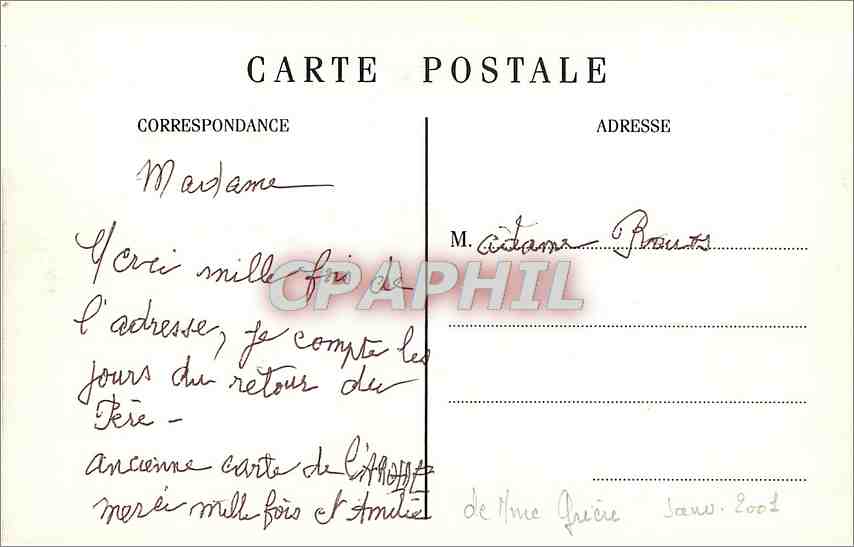 CARTE POSTALE
CORRESPONDANCE
Madame
Merci mille fois de
l'adresse, je compte les
jours du retour du
Père -
ancienne carte de l'
merci mille fois et
ADRESSE
M. adame
de Mme janv. 2001
CPAPHIL